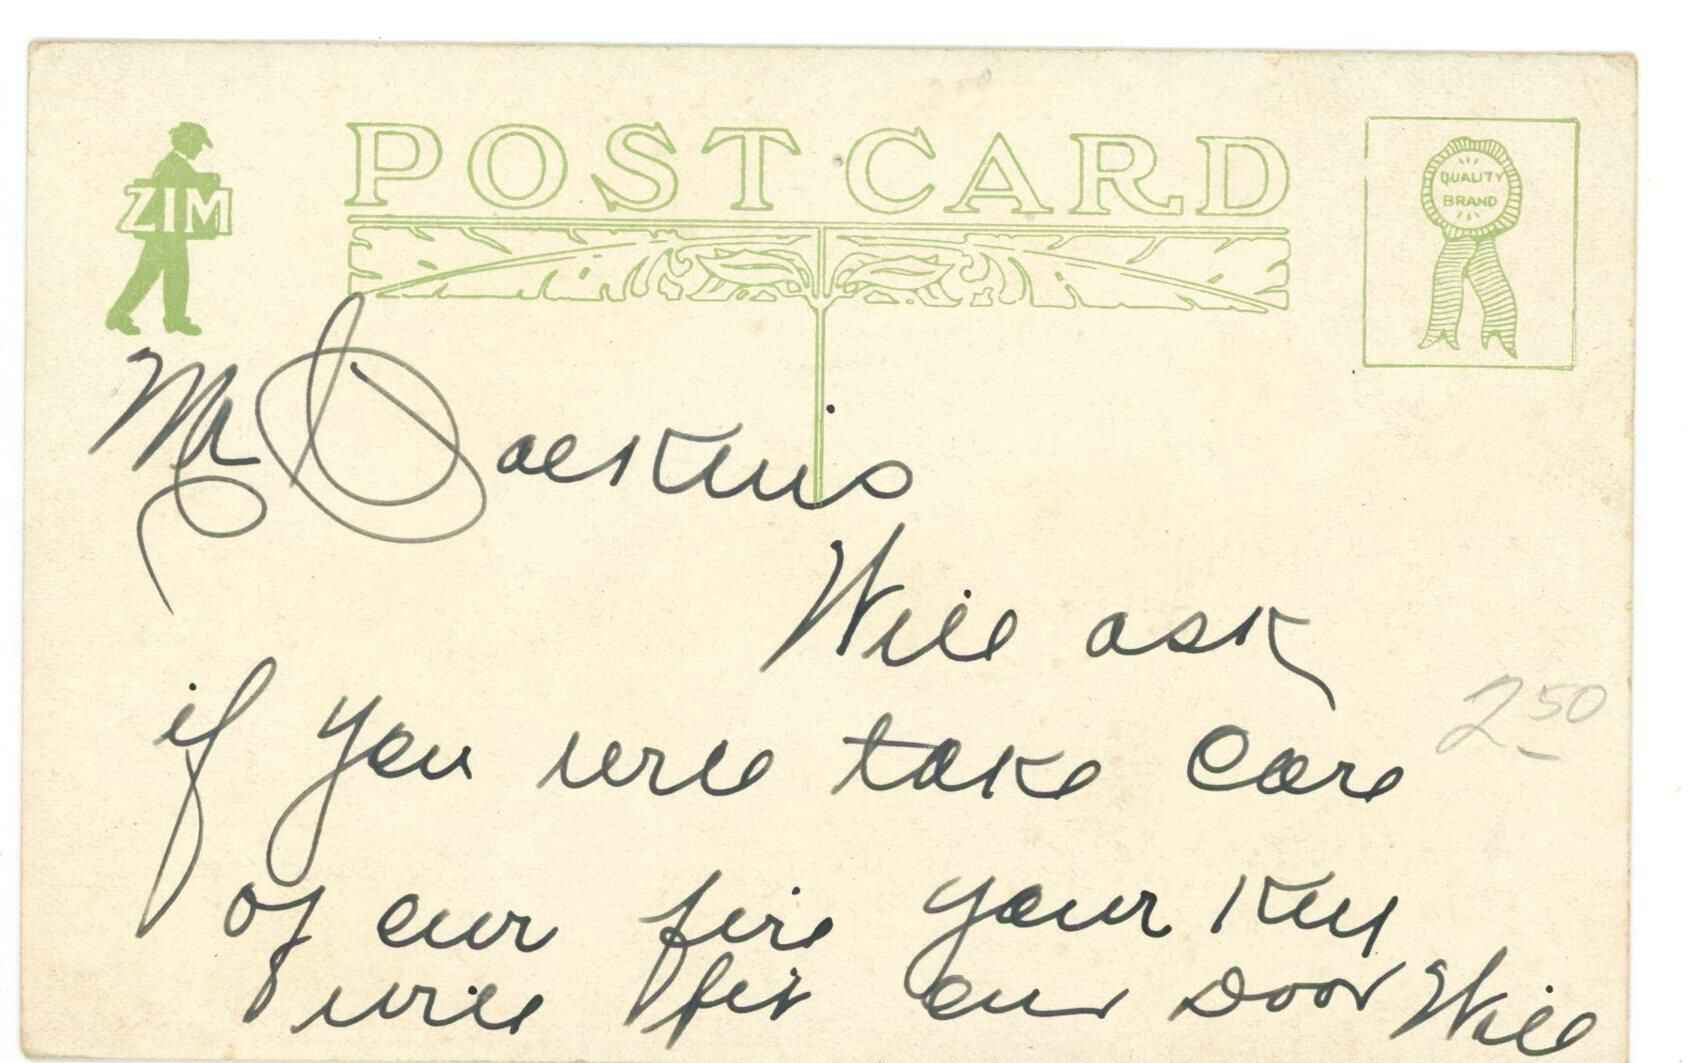 POST CARD
ZIM
QUALITY
BRAND
Mr Daeskins
Will ask
if you will take care
2 50
of our fire your Key
will fit our Door Will